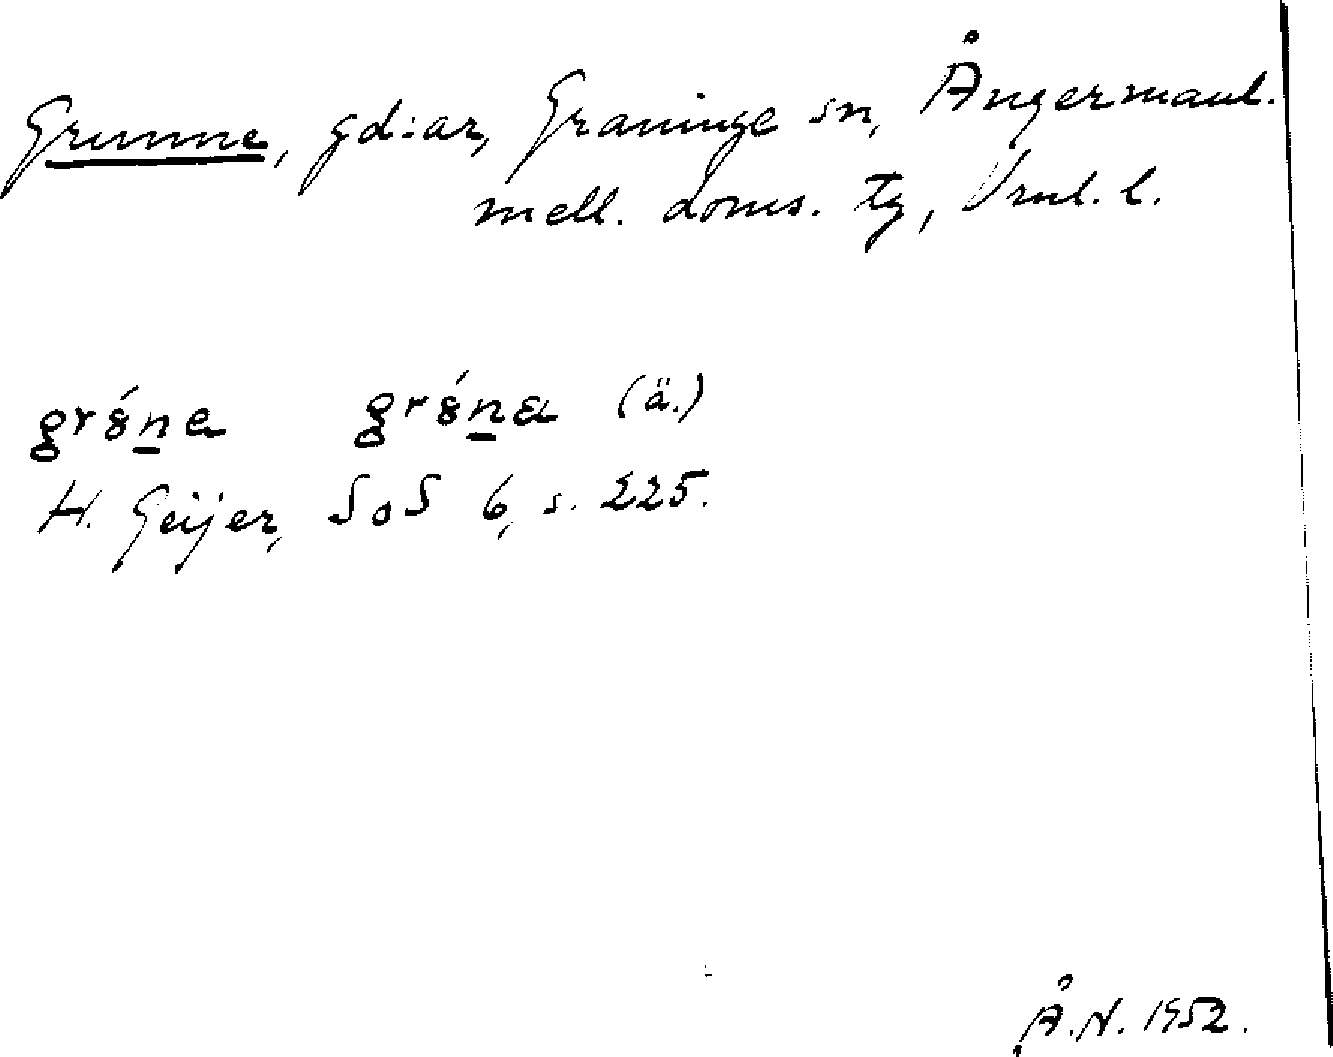 Grunne, gd:ar, Graninge sn, Ångermanl.
mell. doms. tg, Vrnl. l.
gr8́ne gr8́na (ä.)
H. Geijer, SoS 6, s. 225.
Å.N. 1952.